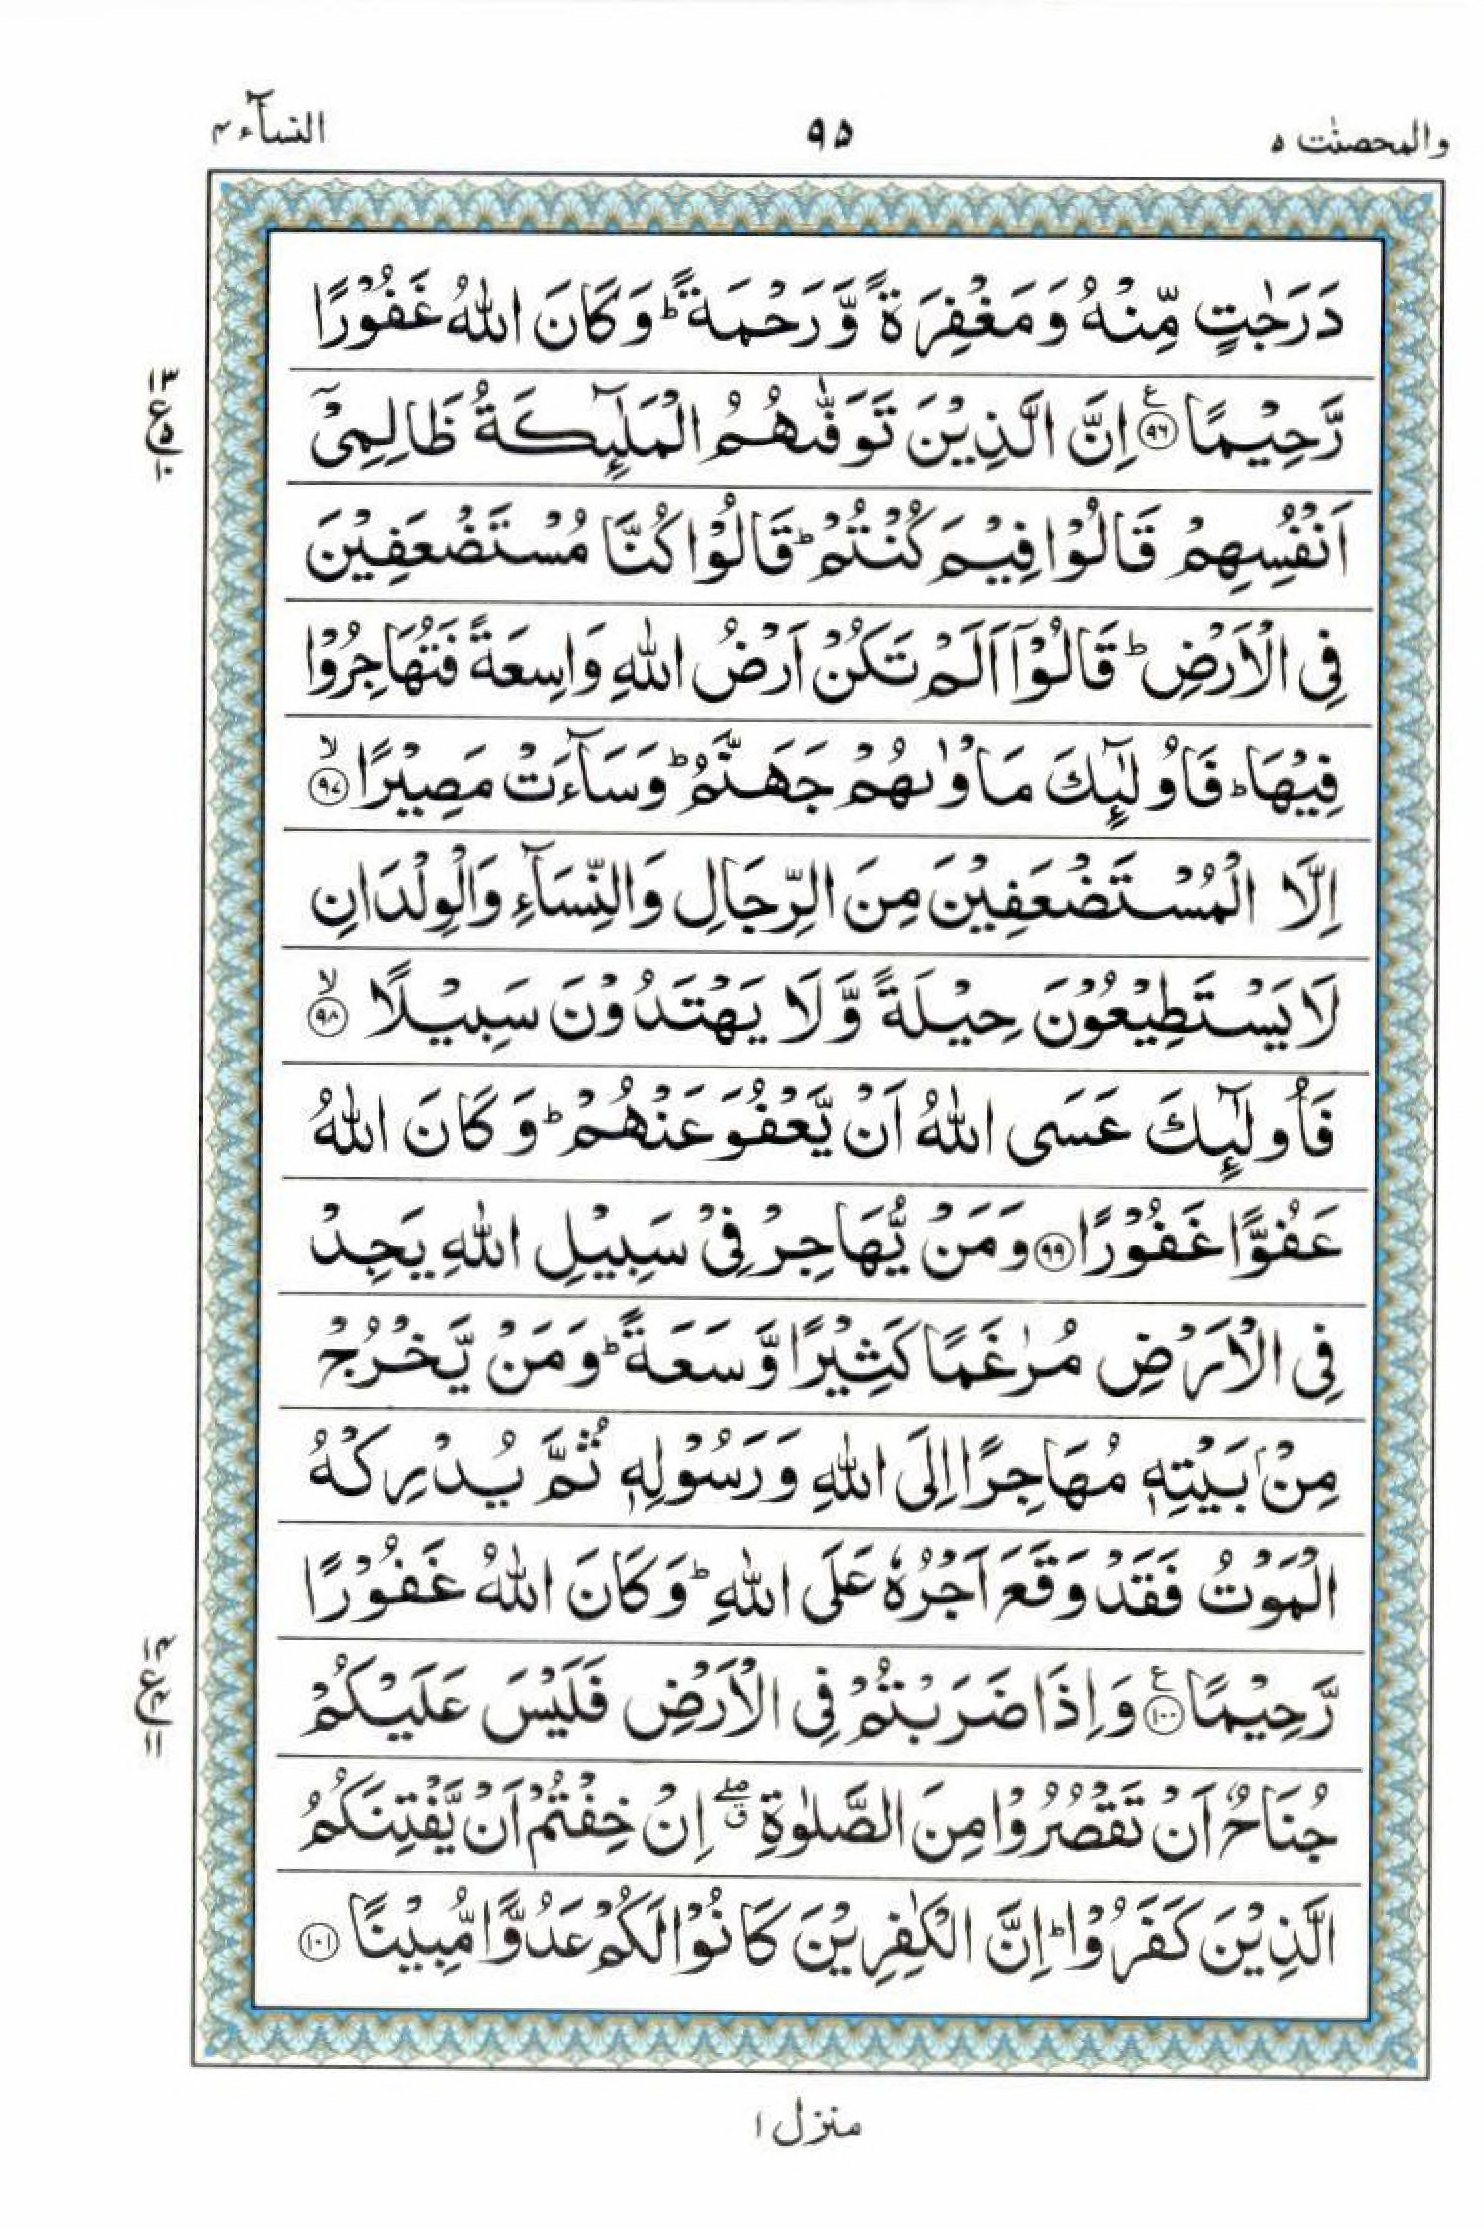 والمحصنٰت ۵
۹۵
النسآء ۴
دَرَجٰتٍ مِّنْهُ وَمَغْفِرَةً وَّرَحْمَةً ؕ وَكَانَ اللّٰهُ غَفُوْرًا
رَّحِيْمًا ۧ﴿۹۶﴾ اِنَّ الَّذِيْنَ تَوَفّٰٮهُمُ الْمَلٰٓٮِٕكَةُ ظَالِمِىْۤ
۱۳
ع
۵
۱۰
اَنْفُسِهِمْ قَالُوْا فِيْمَ كُنْتُمْ ؕ قَالُوْا كُنَّا مُسْتَضْعَفِيْنَ
فِى الْاَرْضِ ؕ قَالُوْۤا اَلَمْ تَكُنْ اَرْضُ اللّٰهِ وَاسِعَةً فَتُهَاجِرُوْا
فِيْهَا ؕ فَاُولٰٓٮِٕكَ مَاْوٰٮهُمْ جَهَنَّمُ ؕ وَسَآءَتْ مَصِيْرًا ۙ﴿۹۷﴾
اِلَّا الْمُسْتَضْعَفِيْنَ مِنَ الرِّجَالِ وَالنِّسَآءِ وَالْوِلْدَانِ
لَا يَسْتَطِيْعُوْنَ حِيْلَةً وَّلَا يَهْتَدُوْنَ سَبِيْلًا ۙ﴿۹۸﴾
فَاُولٰٓٮِٕكَ عَسَى اللّٰهُ اَنْ يَّعْفُوَ عَنْهُمْ ؕ وَكَانَ اللّٰهُ
عَفُوًّا غَفُوْرًا ﴿۹۹﴾ وَمَنْ يُّهَاجِرْ فِىْ سَبِيْلِ اللّٰهِ يَجِدْ
فِى الْاَرْضِ مُرٰغَمًا كَثِيْرًا وَّسَعَةً ؕ وَمَنْ يَّخْرُجْ
مِنْۢ بَيْتِهٖ مُهَاجِرًا اِلَى اللّٰهِ وَرَسُوْلِهٖ ثُمَّ يُدْرِكْهُ
الْمَوْتُ فَقَدْ وَقَعَ اَجْرُهٗ عَلَى اللّٰهِ ؕ وَكَانَ اللّٰهُ غَفُوْرًا
رَّحِيْمًا ۧ﴿۱۰۰﴾ وَاِذَا ضَرَبْتُمْ فِى الْاَرْضِ فَلَيْسَ عَلَيْكُمْ
۱۴
ع
۴
۱۱
جُنَاحٌ اَنْ تَقْصُرُوْا مِنَ الصَّلٰوةِ ۖق اِنْ خِفْتُمْ اَنْ يَّفْتِنَكُمُ
الَّذِيْنَ كَفَرُوْا ؕ اِنَّ الْكٰفِرِيْنَ كَانُوْا لَكُمْ عَدُوًّا مُّبِيْنًا ﴿۱۰۱﴾
منزل ۱